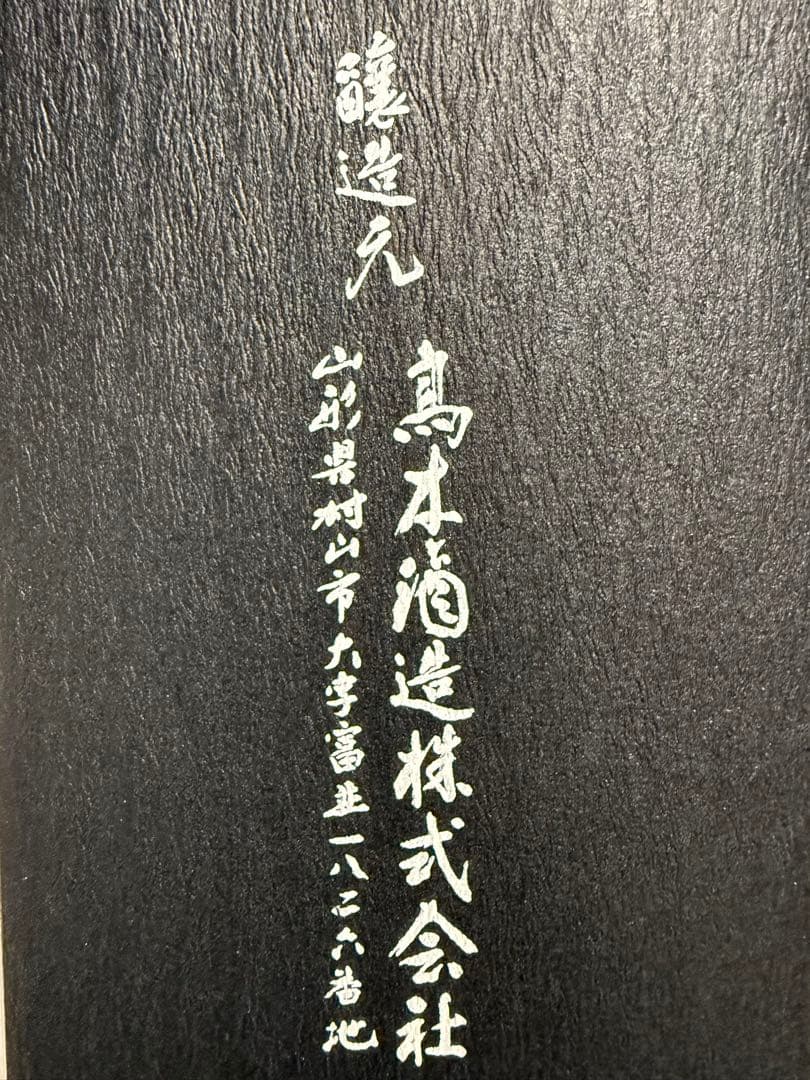 醸造元
高木酒造株式会社
山形県村山市大字富並一八二六番地